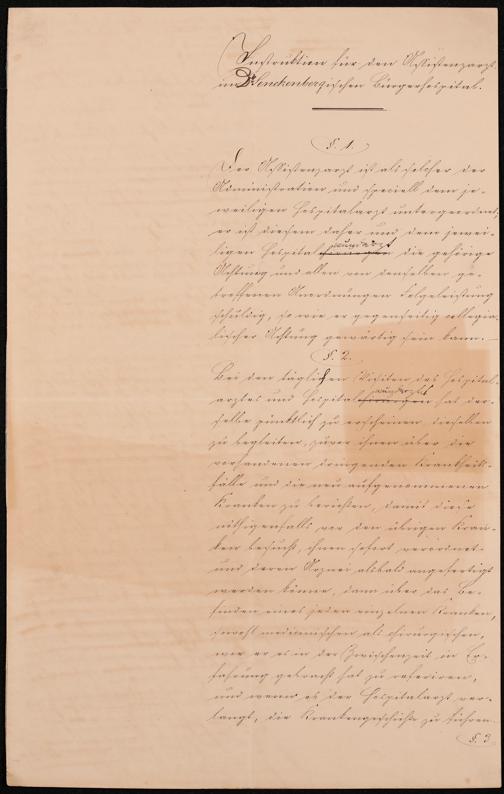 Instruktion für den Assistenzarzt
im Dr. Senckenbergischen Bürgerhospital.
§. 1.
Der Assistenzarzt ist als solcher der
Administration und speciell dem je-
weiligen Hospitalarzt untergeordnet,
er ist diesem daher und dem jewei-
ligen Hospitalwundarzt die gehörige
Achtung und allen von denselben ge-
troffenen Anordnungen Folgeleistung
schuldig, so wie er gegenseitig collegia-
lischer Achtung gewärtig sein kann.
§. 2.
Bei den täglichen Visiten des Hospital-
arztes und Hospitalwundarztes hat der-
selbe pünktlich zu erscheinen, dieselben
zu begleiten, zuvor ihnen über die
vorhandenen dringenden Krankheits-
fälle und die neu aufgenommenen
Kranken zu berichten, damit diese
nöthigenfalls vor den übrigen Kran-
ken besucht, ihnen sofort verordnet
und deren Arznei alsbald angefertigt
werden könne, dann über das Be-
finden eines jeden einzelnen Kranken,
sowohl medicinischen als chirurgischen,
wie er es in der Zwischenzeit in Er-
fahrung gebracht hat zu referiren,
und wenn es der Hospitalarzt ver-
langt, die Krankengeschichte zu führen.
§. 3